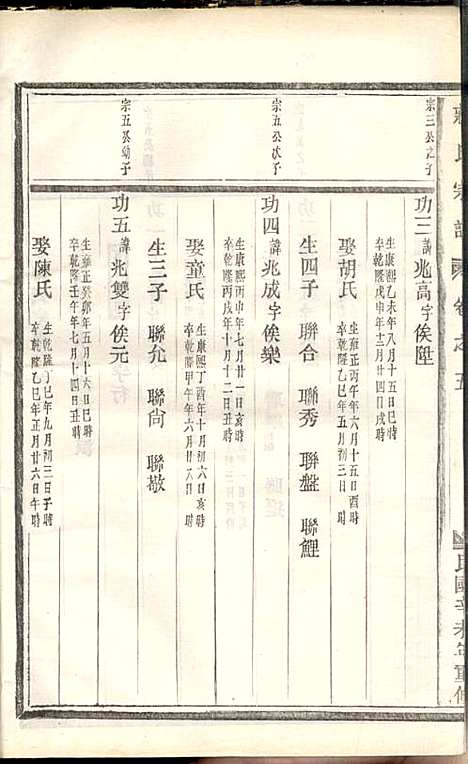 氏宗譜 卷之五
民國辛未年重修
宗三公之子
功三 諱兆高字俟陞
生康熙乙未年八月十五日巳時
卒乾隆戊申年十二月廿四日戌時
娶胡氏
生雍正丙午年六月十五日酉時
卒乾隆乙巳年五月初三日 時
生四子 聯合 聯秀 聯盤 聯鯉
宗五公次子
功四 諱兆成字俟樂
生康熙丙申年七月廿一日亥時
卒乾隆丙戌年十月十二日丑時
娶童氏
生康熙丁酉年十月初六日亥時
卒乾隆甲午年六月廿八日 時
生三子 聯允 聯尚 聯敬
宗五公幼子
功五 諱兆雙字俟元
生雍正癸卯年五月十六日巳時
卒乾隆壬午年七月十四日丑時
娶陳氏
生乾隆丁巳年九月初三日子時
卒乾隆乙巳年正月廿六日午時